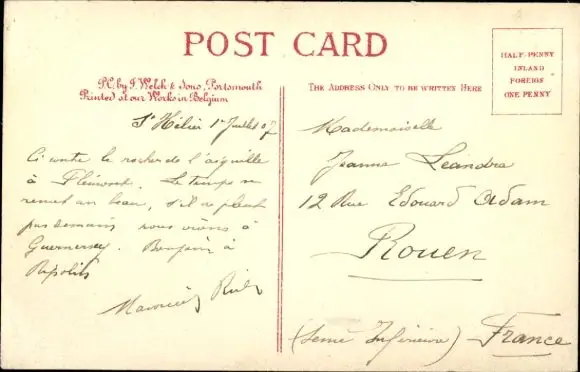 POST CARD
HALF-PENNY
INLAND
FOREIGN
ONE PENNY
P.C. by J. Welch & Sons, Portsmouth
Printed at our Works in Belgium
THE ADDRESS ONLY TO BE WRITTEN HERE
St Hélier 1er Juillet 07
Ci contre le rocher de l'aiguille
à Plémont. Le temps se
remet au beau, s'il ne pleut
pas demain nous irons à
Guernesey. Bonjour à
Mademoiselle
Jeanne Leandre
12 Rue Edouard Adam
Rouen
(Seine Inférieure) France